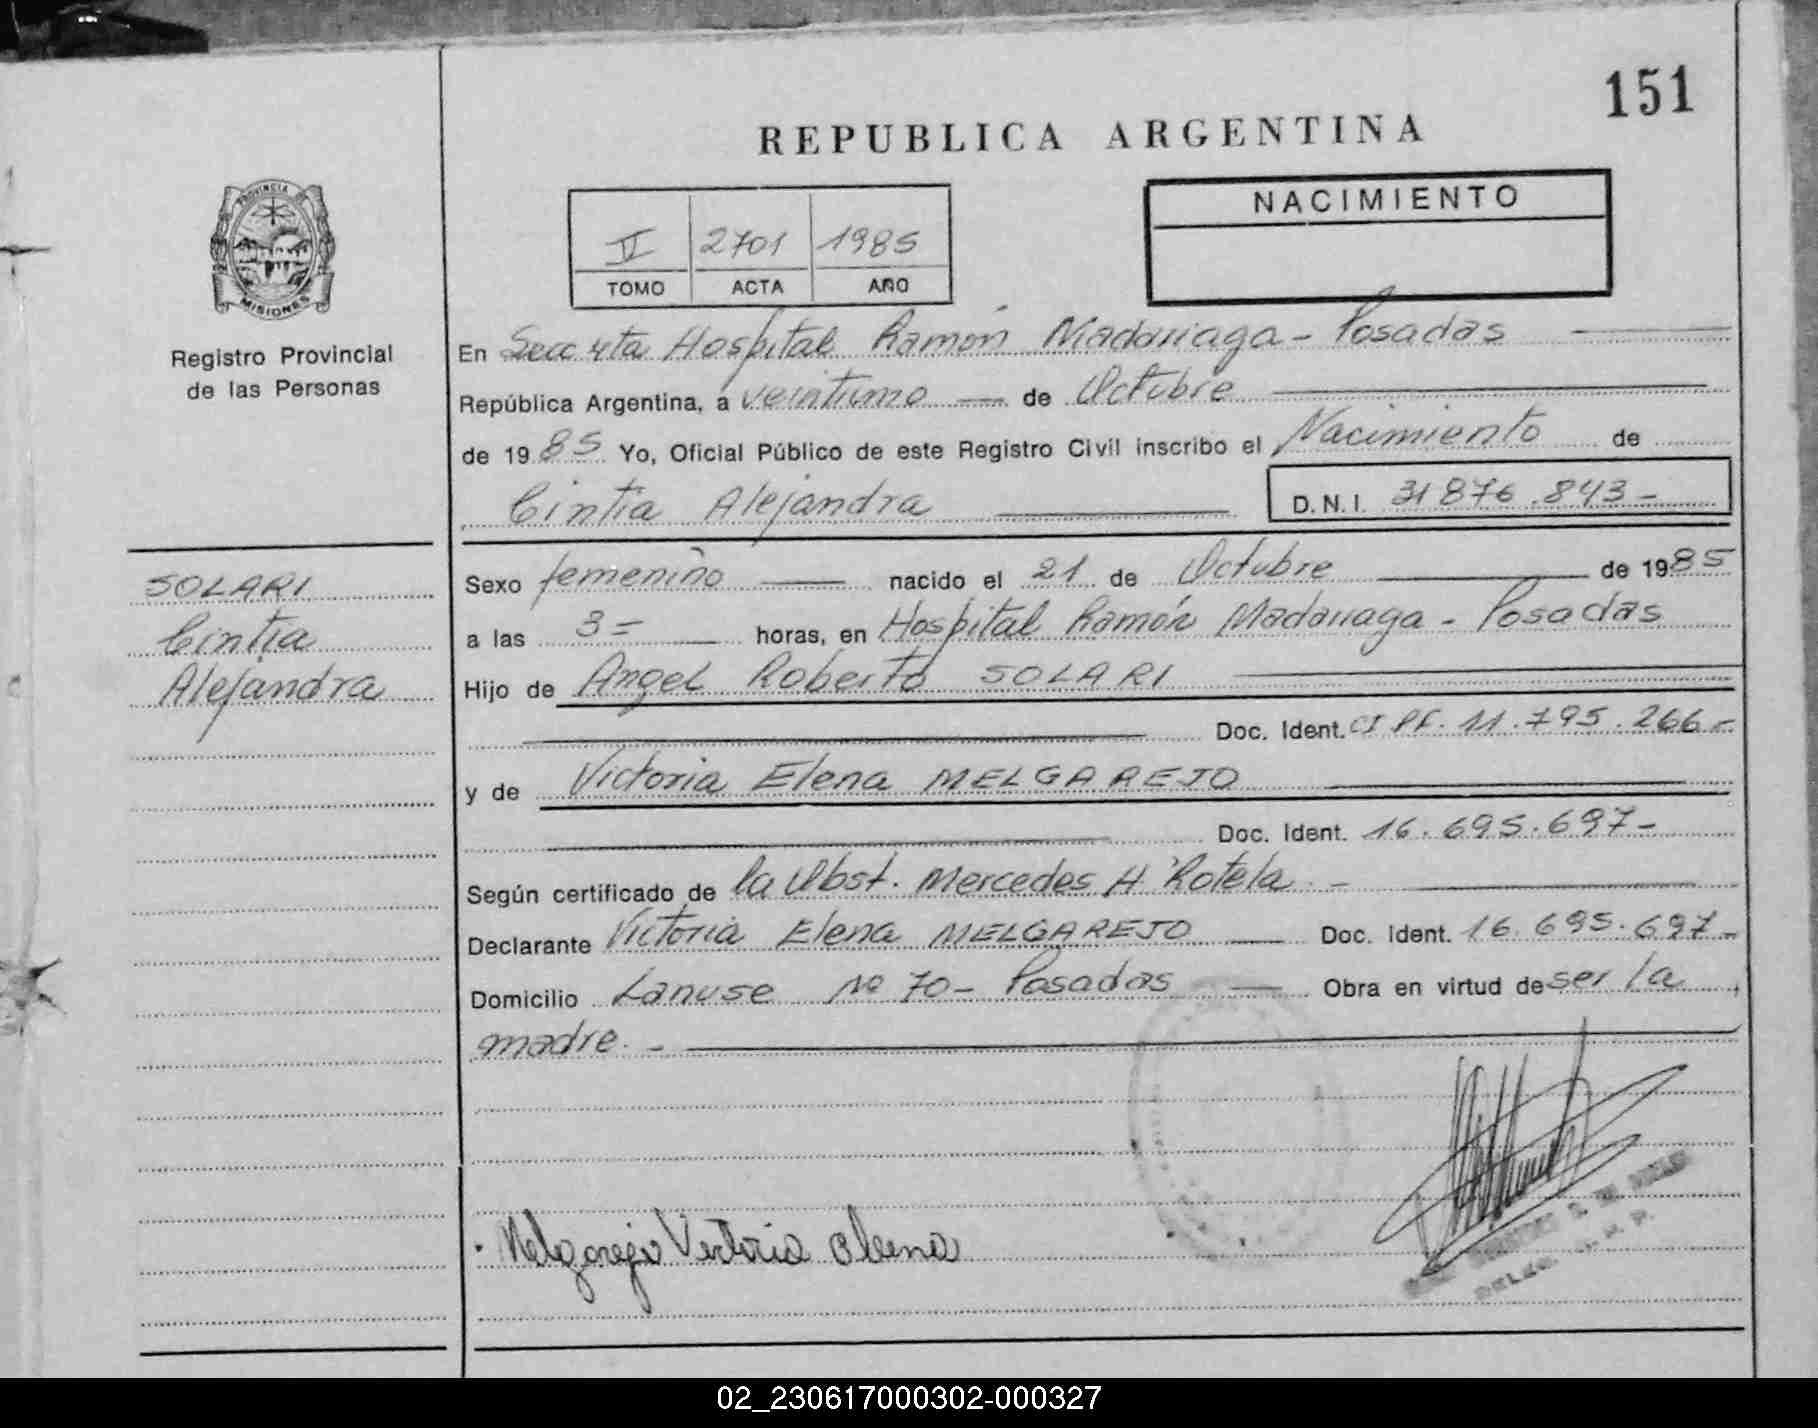 151
REPUBLICA ARGENTINA
PROVINCIA
MISIONES
Registro Provincial
de las Personas
2701 1985
TOMO ACTA AÑO
NACIMIENTO
En Secc 4ta Hospital Ramón Madariaga - Posadas
República Argentina, a veintiuno de Octubre
de 1985 Yo, Oficial Público de este Registro Civil inscribo el Nacimiento de
Cintia Alejandra D.N.I. 31876.843-
SOLARI
Cintia
Alejandra
Sexo femenino nacido el 21 de Octubre de 1985
a las 3= horas, en Hospital Ramón Madariaga - Posadas
Hijo de Angel Roberto SOLARI
Doc. Ident. CI PF. 11.795.266-
y de Victoria Elena MELGAREJO
Doc. Ident. 16.695.697-
Según certificado de la Obst. Mercedes H Rotela -
Declarante Victoria Elena MELGAREJO Doc. Ident. 16.695.697-
Domicilio Lanuse Nº 70- Posadas Obra en virtud de ser la
madre. -
Melgarejo Victoria Elena
02_230617000302-000327